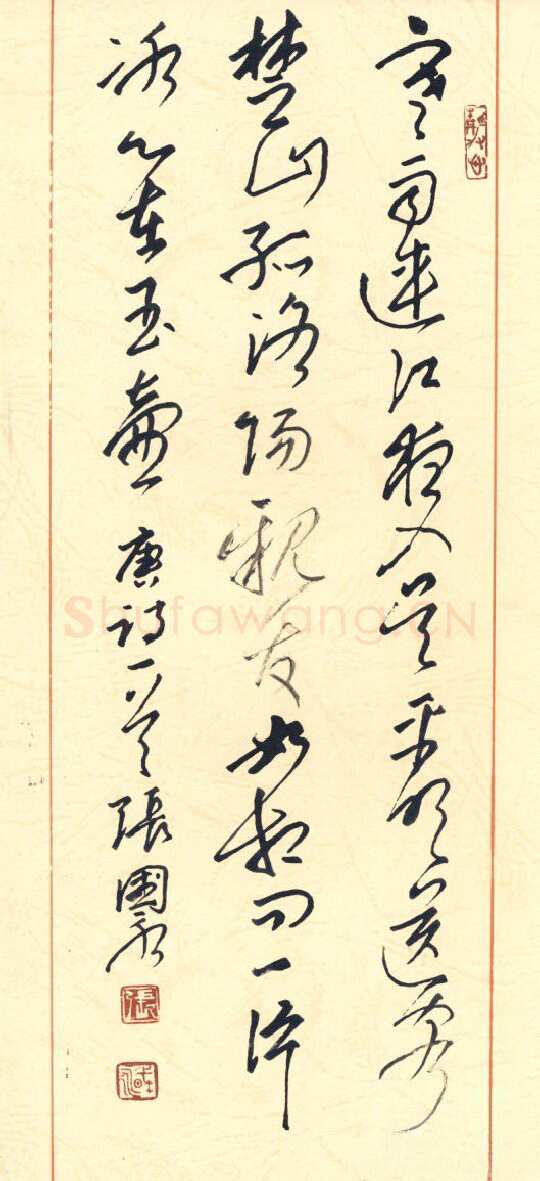 寒雨連江夜入吴平明送客
楚山孤洛陽親友如相问一片
冰心在玉壺 唐诗一首 張國
張
Shufawang.CN